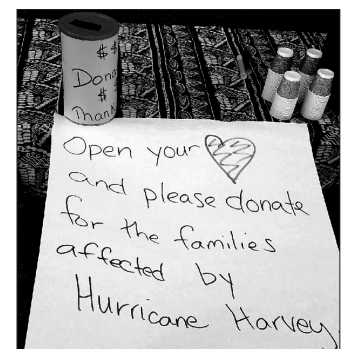 $
$
Thank
Open your
and please donate
for the families
affected by
Hurricane Harvey